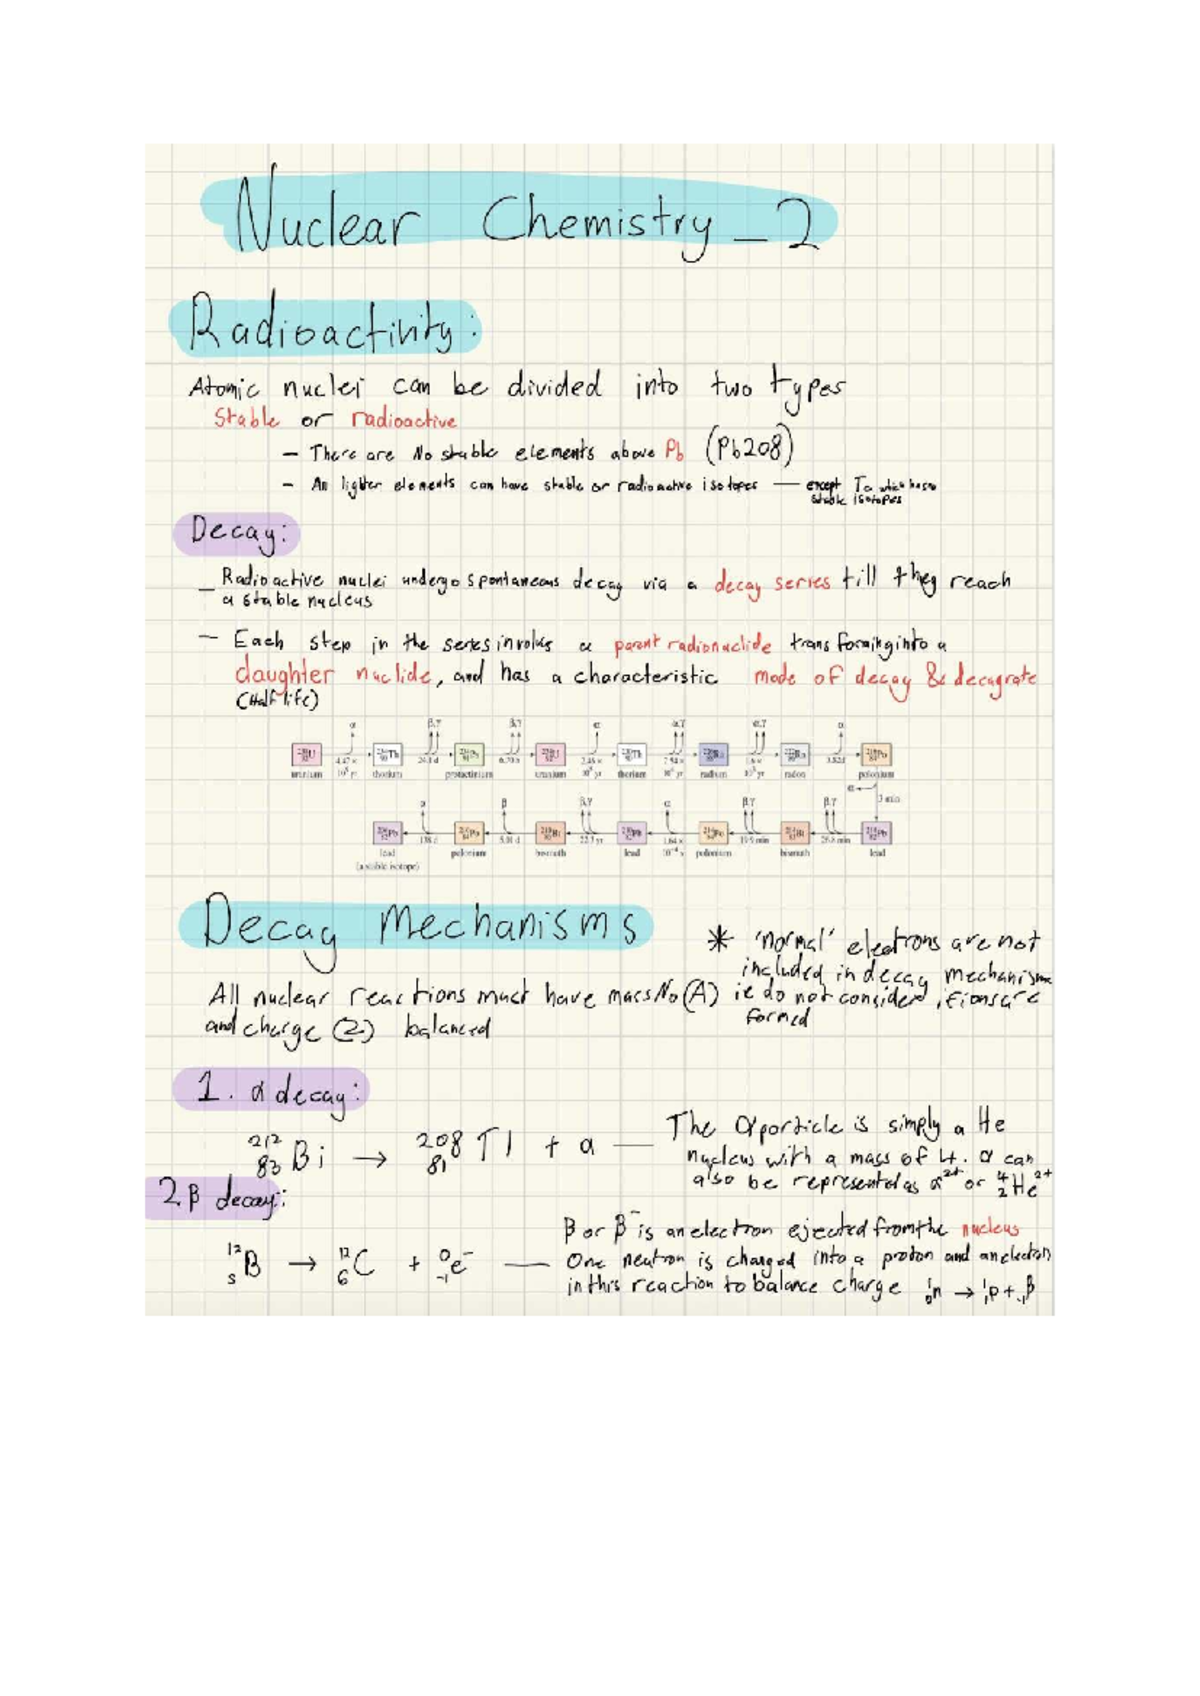 Nuclear Chemistry _ 2
Radioactivity:
Atomic nuclei can be divided into two types
Stable or radioactive
– There are No stable elements above Pb (Pb208)
– All lighter elements can have stable or radioactive isotopes — except Tc which has no
stable isotopes
Decay:
– Radioactive nuclei undergo spontaneous decay via a decay series till they reach
a stable nucleus
– Each step in the series involves a parent radionuclide transforming into a
daughter nuclide, and has a characteristic mode of decay & decay rate
(Half life)
α β,γ β,γ α α,γ α,γ α
uranium thorium protactinium uranium thorium radium radon polonium
α 3 min
α β β,γ α β,γ β,γ
lead polonium bismuth lead polonium bismuth lead
(a stable isotope)
Decay Mechanisms
* 'normal' electrons are not
included in decay mechanisms
ie do not consider if ions are
formed
All nuclear reactions must have mass No (A)
and charge (Z) balanced
1. α decay:
²¹²₈₃Bi → ²⁰⁸₈₁Tl + α — The α particle is simply a He
nucleus with a mass of 4. α can
also be represented as α²⁺ or ⁴₂He²⁺
2 β decay:
β or β⁻ is an electron ejected from the nucleus
¹²₅B → ¹²₆C + ⁰₋₁e⁻ — One neutron is changed into a proton and an electron
in this reaction to balance charge ¹₀n → ¹₁p + ₋₁β